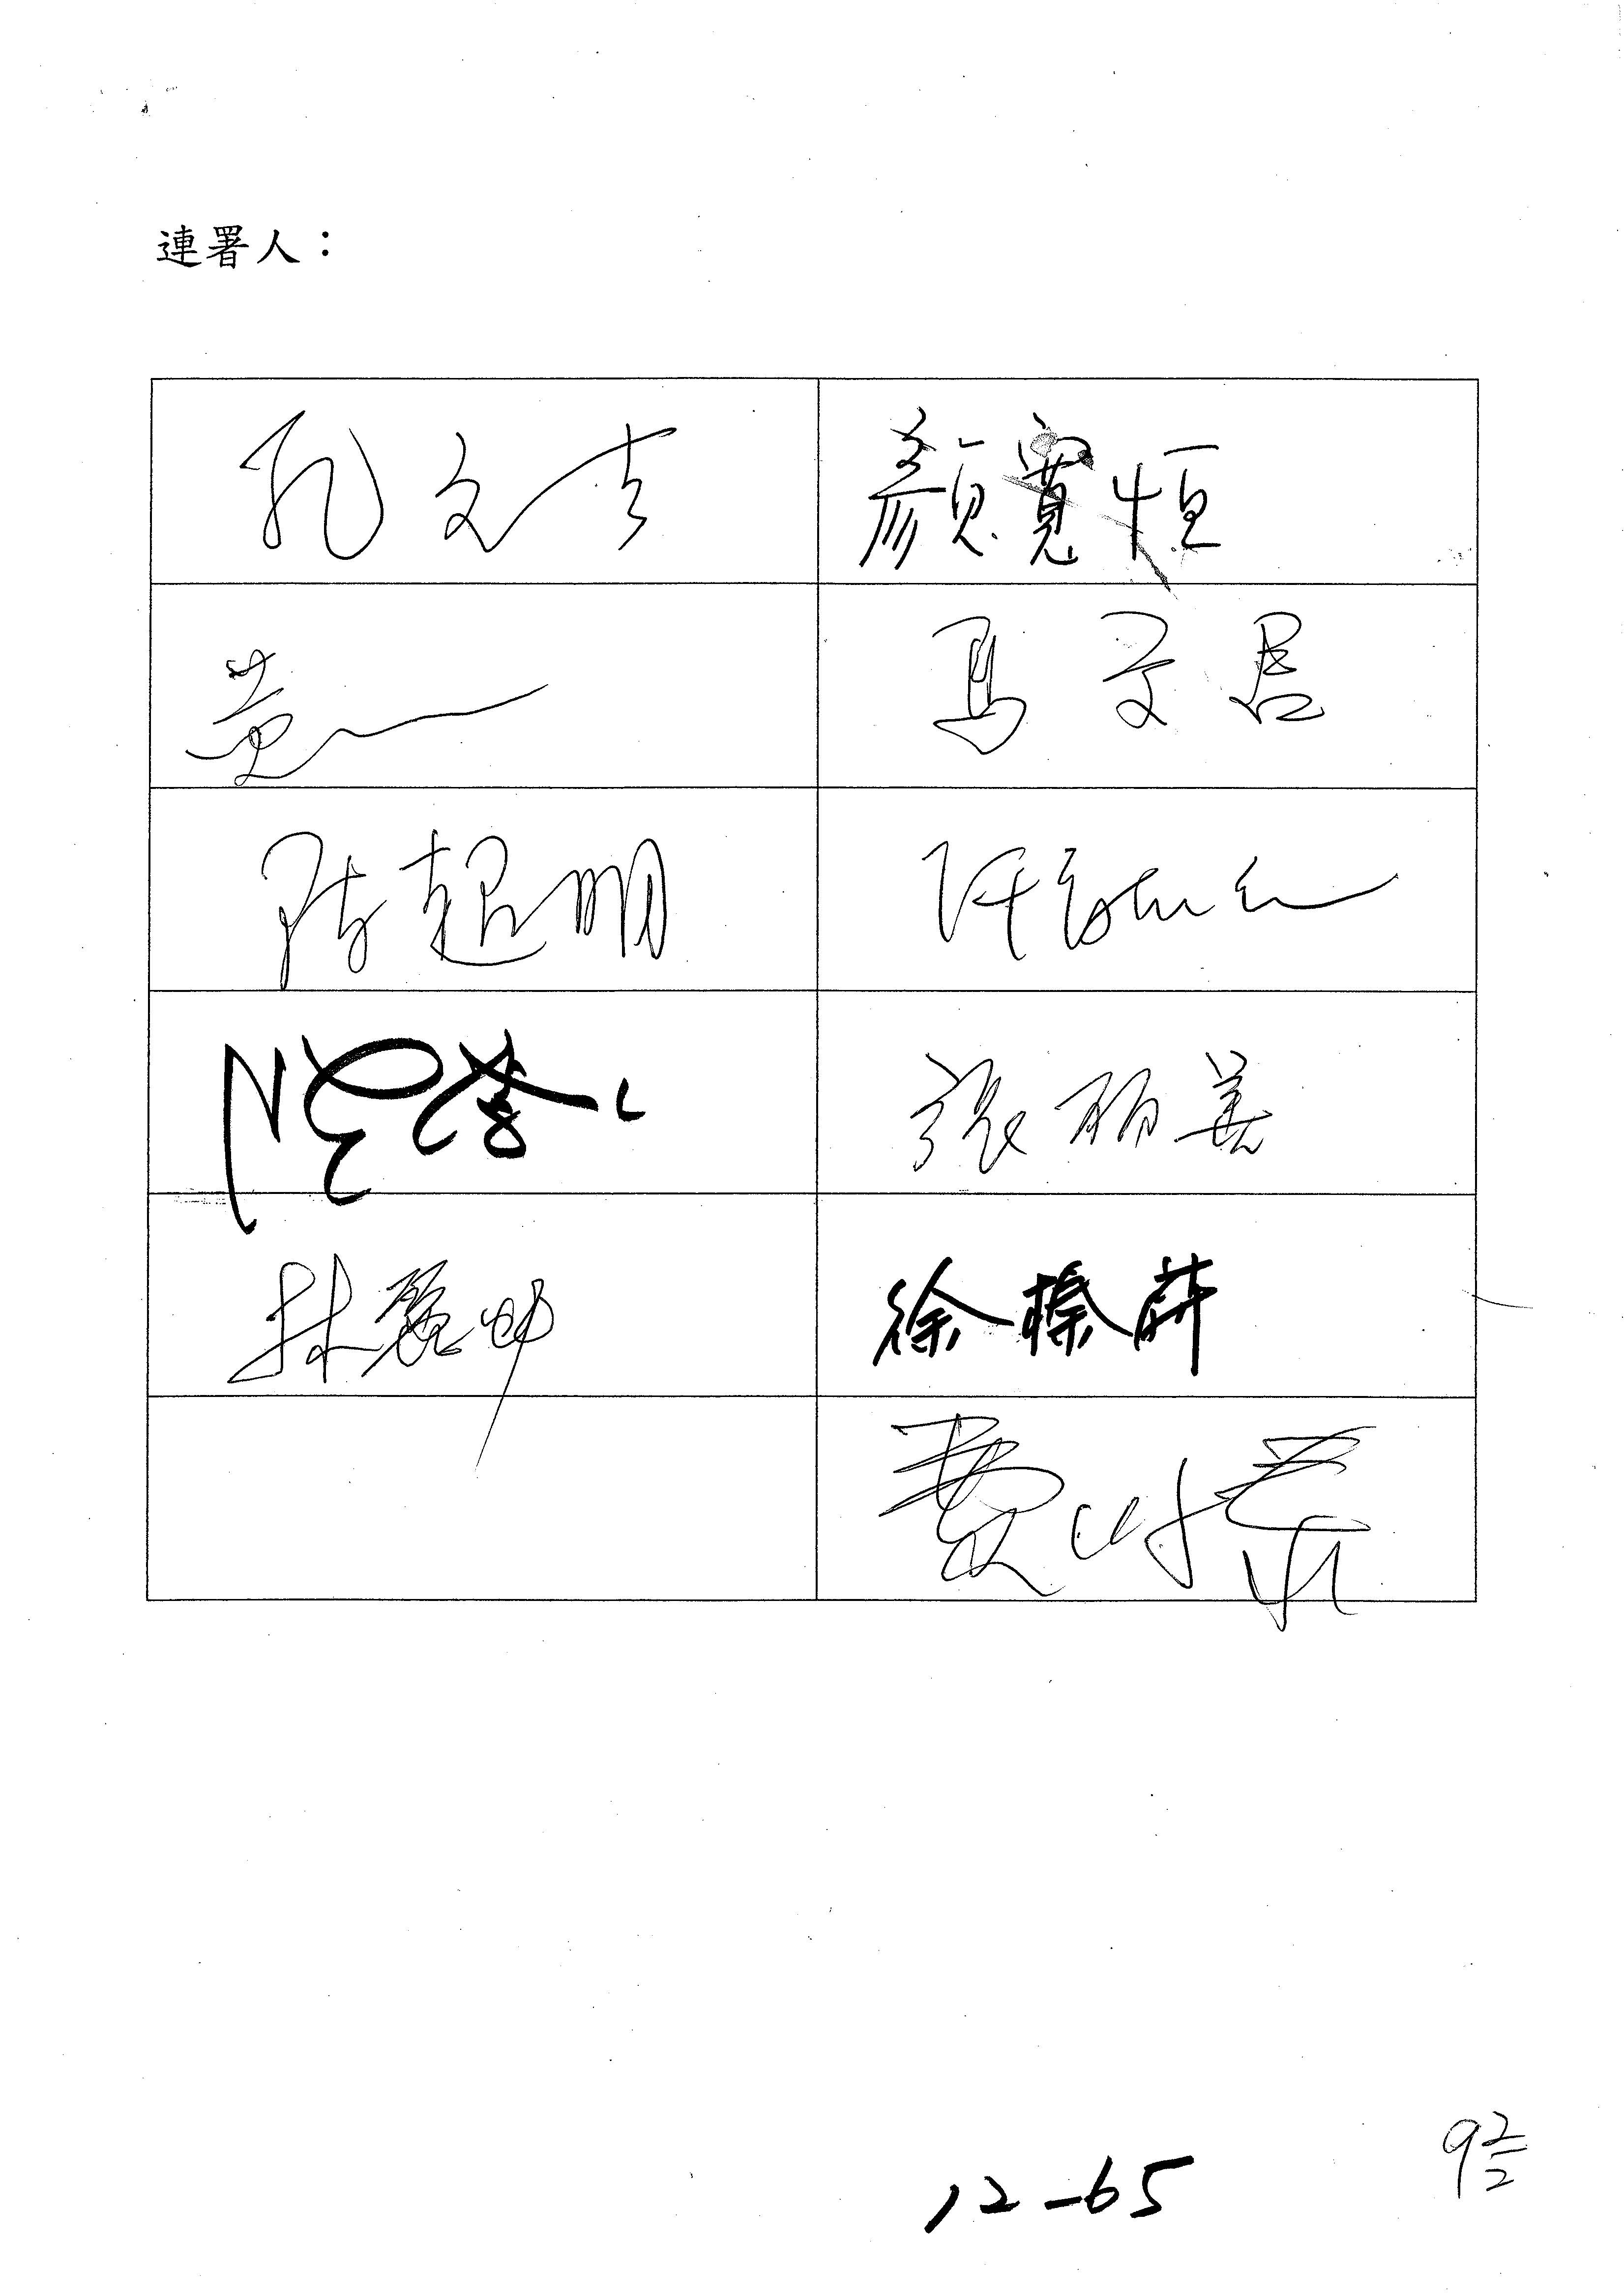 連署人：
孔文吉 顏寬恒
馬文君
陳超明
張麗善
林麗蟬 徐榛蔚
費鴻泰
12-65
92